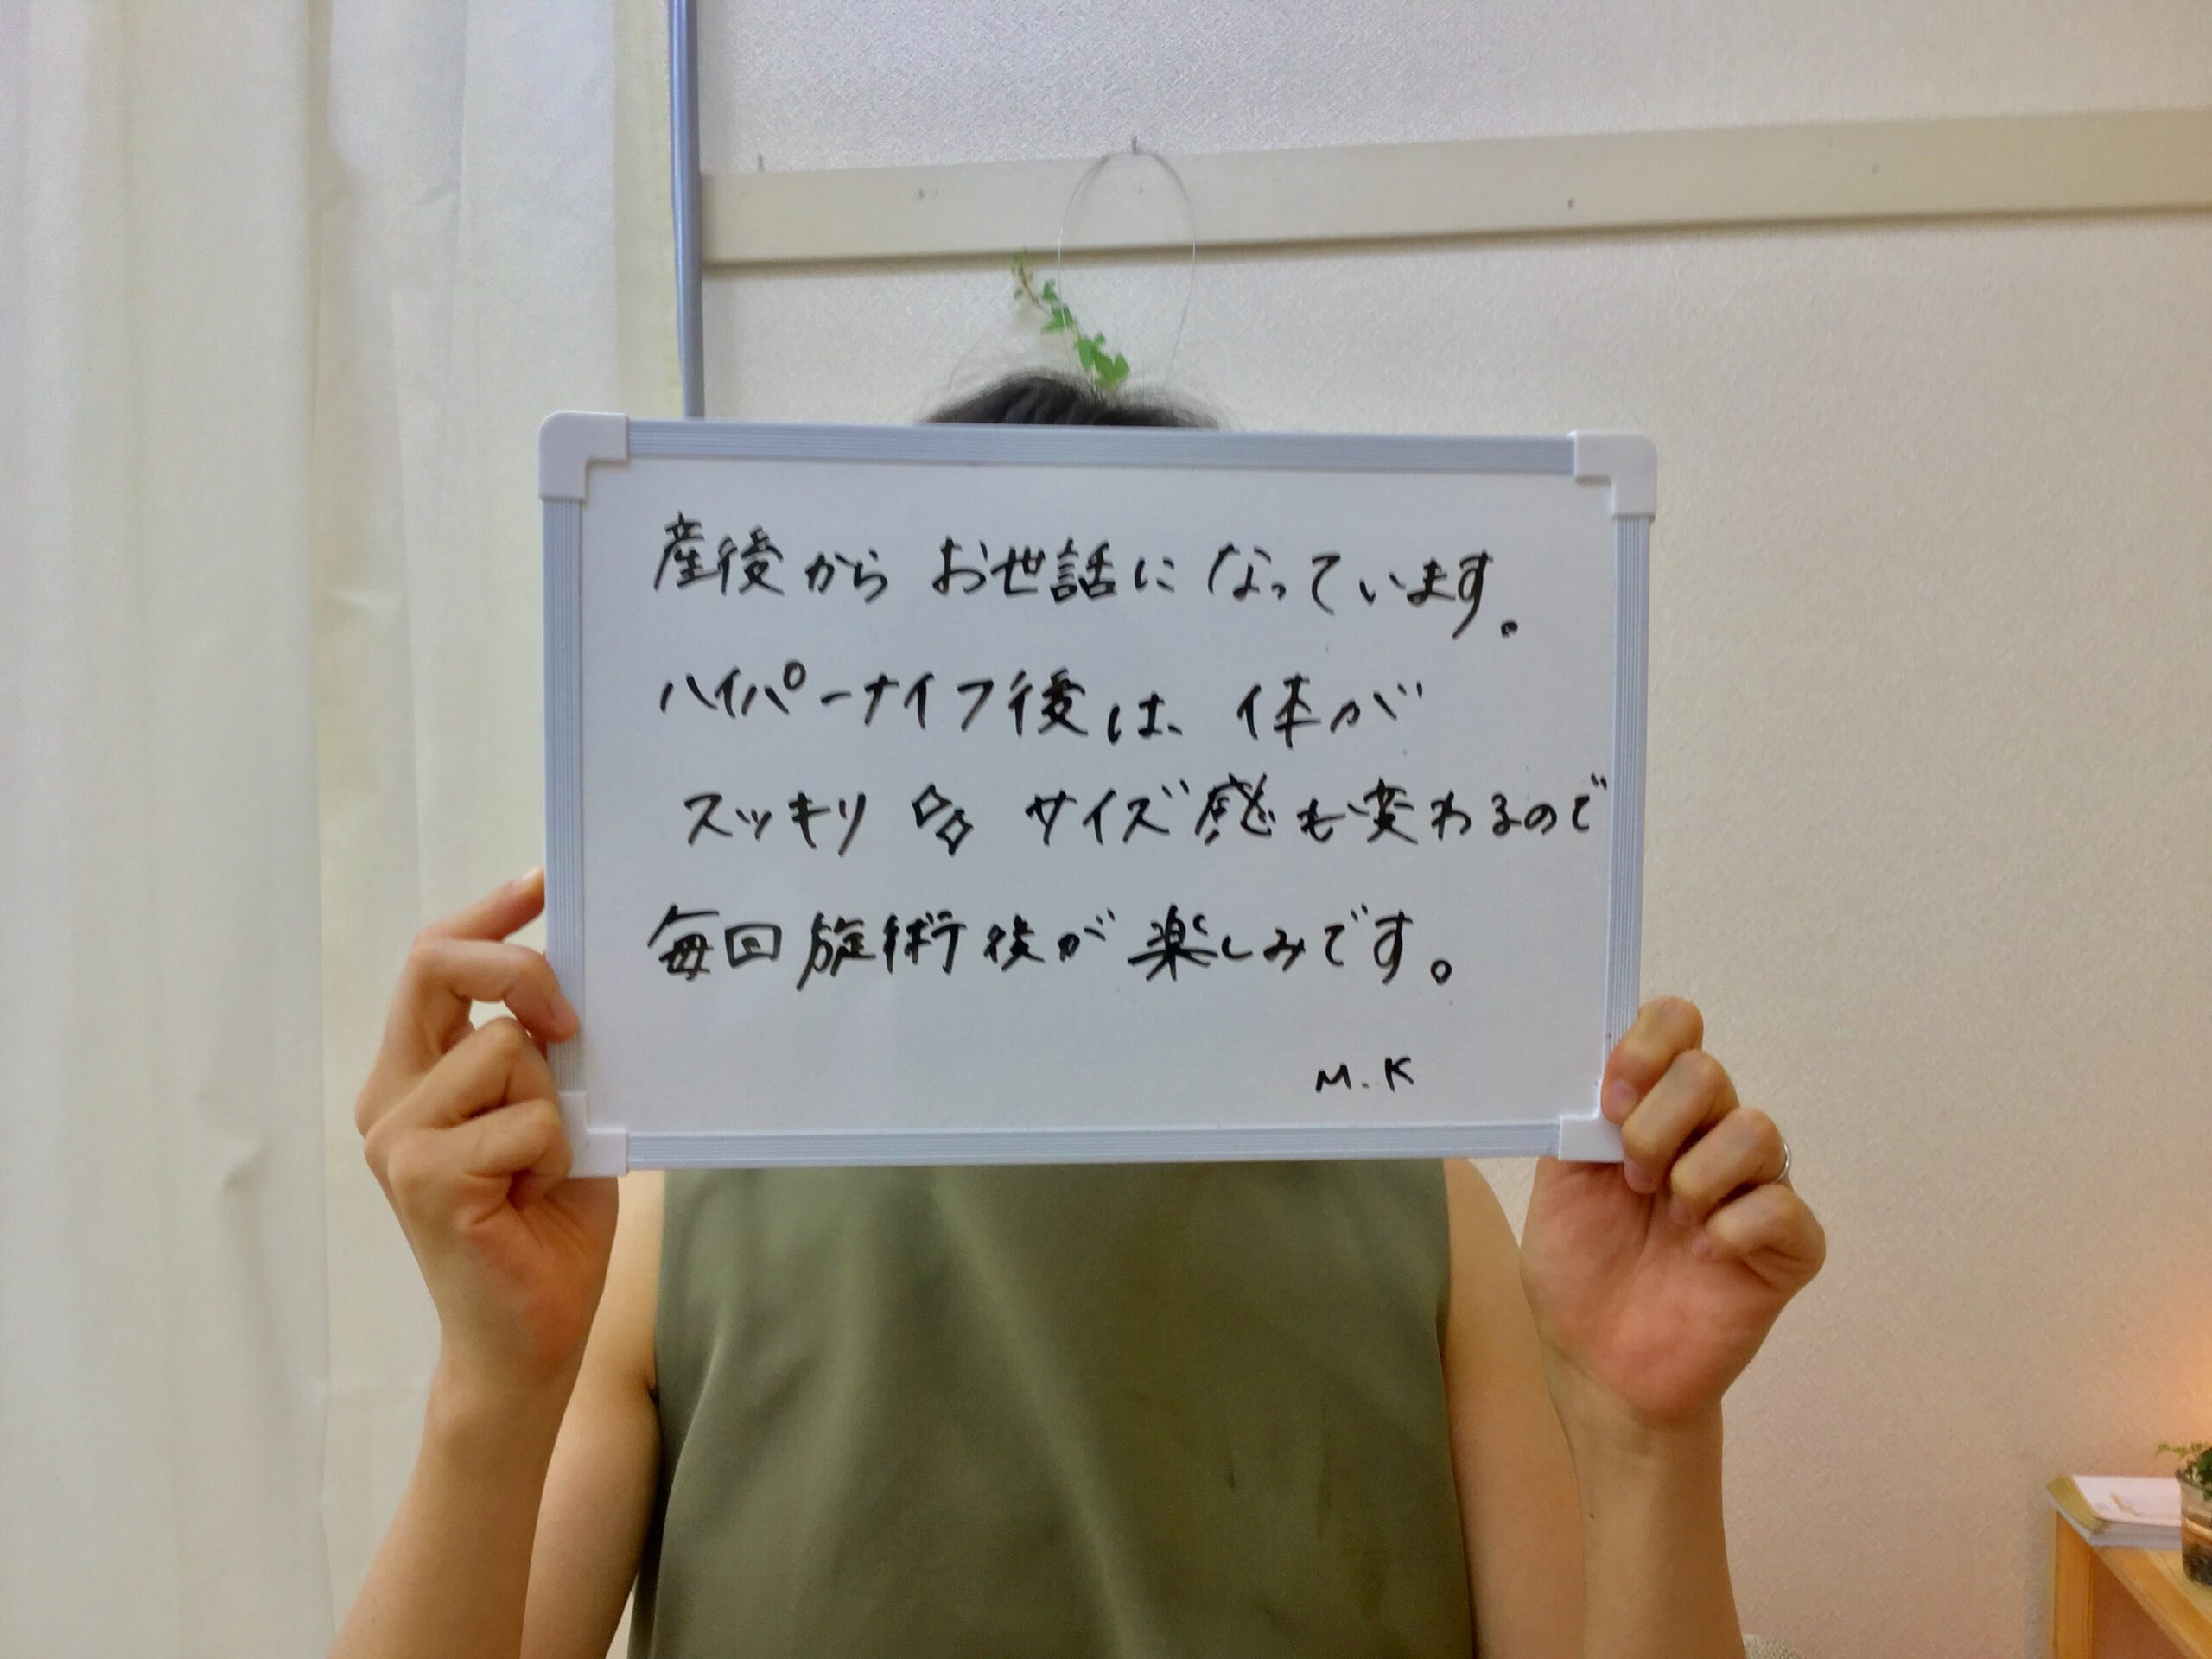 産後からお世話になっています。
ハイパーナイフ後は、体が
スッキリ✧✧ サイズ感も変わるので
毎回施術後が楽しみです。
M.K